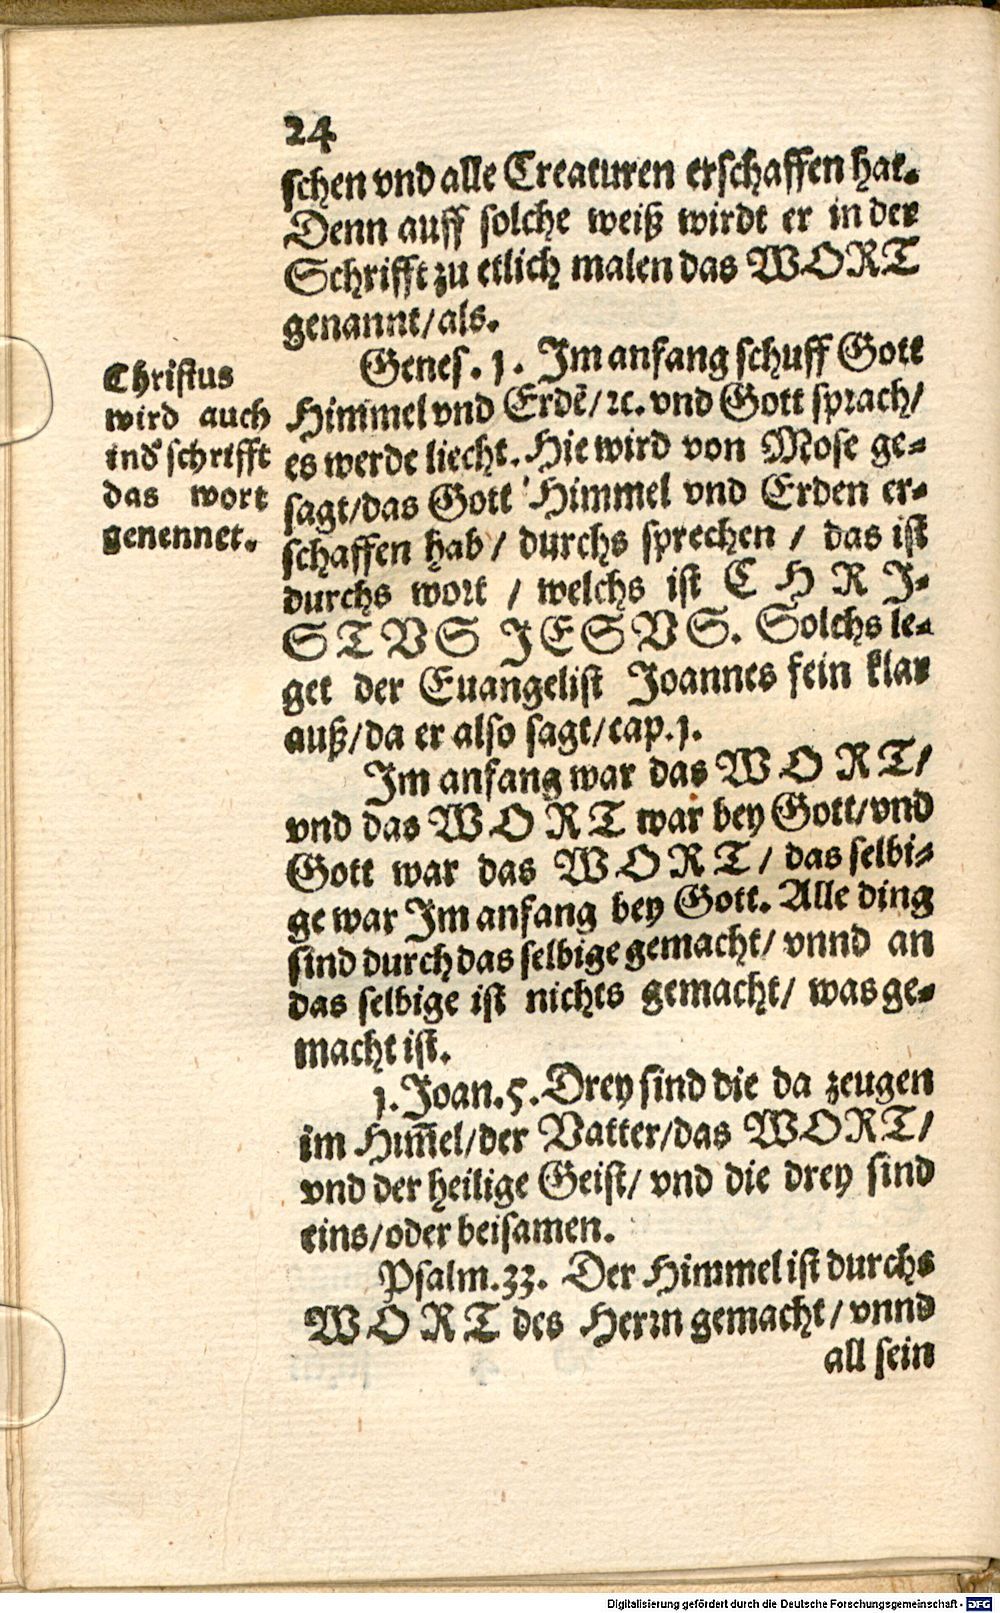 24
schen vnd alle Creaturen erschaffen hat.
Denn auff solche weiß wirdt er in der
Schrifft zu etlich malen das WORT
genannt/als.
Genes. 1. Im anfang schuff Gott
Himmel vnd Erdẽ/ ꝛc. vnd Gott sprach/
es werde liecht. Hie wird von Mose ge-
sagt/das Gott Himmel vnd Erden er-
schaffen hab/ durchs sprechen / das ist
durchs wort / welchs ist C H R I-
S T V S I E S V S. Solchs le-
get der Euangelist Joannes fein klar
auß/da er also sagt/cap.1.
Christus
wird auch
in d' schrifft
das wort
genennet.
Im anfang war das W O R T/
vnd das W O R T war bey Gott/vnd
Gott war das W O R T / das selbi-
ge war Im anfang bey Gott. Alle ding
sind durch das selbige gemacht/ vnnd an
das selbige ist nichts gemacht/ was ge-
macht ist.
1. Joan. 5. Drey sind die da zeugen
im Him̃el/der Vatter/das WORT/
vnd der heilige Geist/ vnd die drey sind
eins/oder beisamen.
Psalm. 33. Der Himmel ist durchs
W O R T des Herrn gemacht/ vnnd
all sein
Digitalisierung gefördert durch die Deutsche Forschungsgemeinschaft - DFG